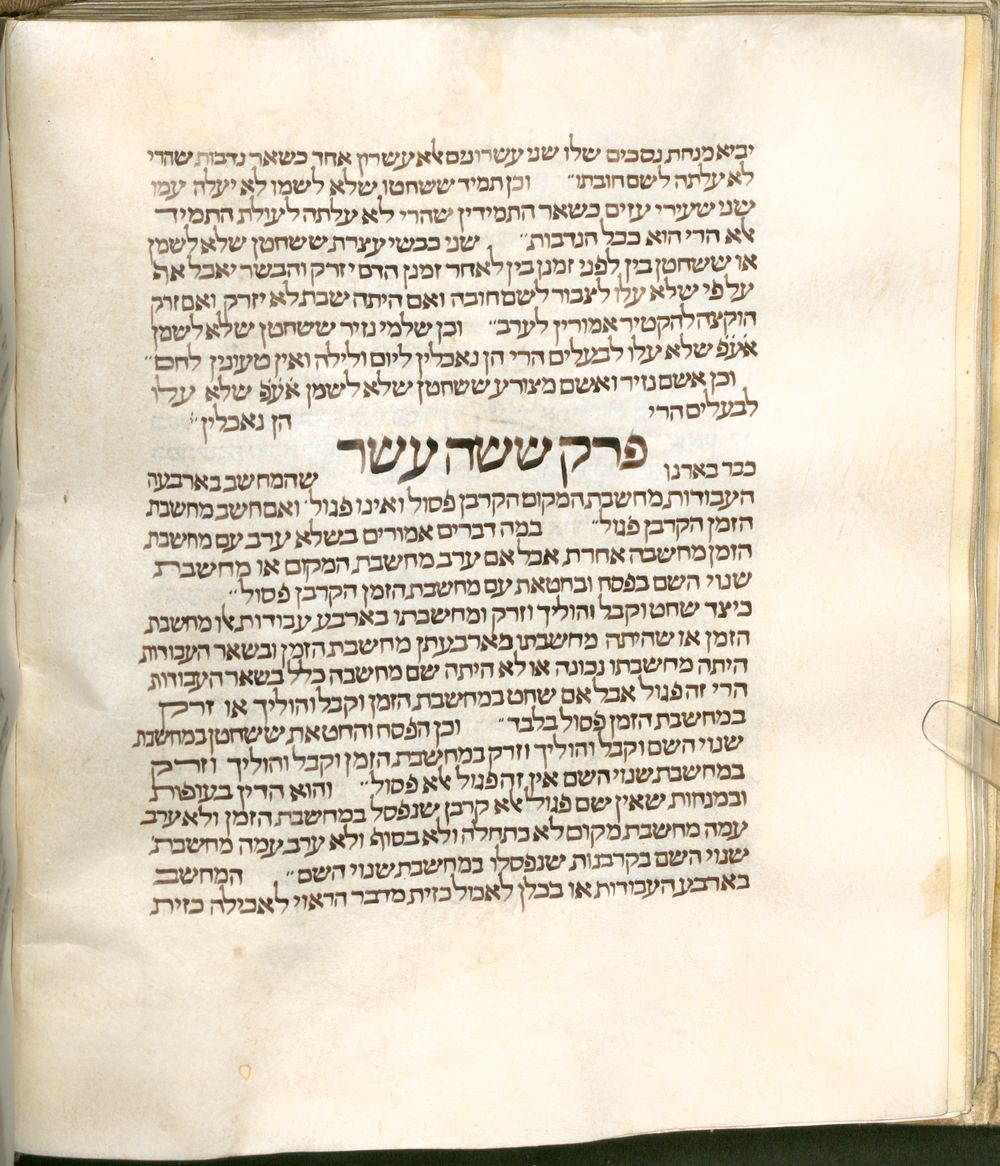 יביא מנחת נסכים שלו שני עשרונים אלא עשרון אחד כשאר נדבות שהרי
לא עלתה לשם חובתו״ וכן תמיד ששחטו שלא לשמו לא יעלה עמו
שני שעירי עזים כשאר התמידין שהרי לא עלתה לעולת התמיד
אלא הרי הוא ככל הנדבות״ שני כבשי עצרת ששחטן שלא לשמן
או ששחטן בין לפני זמנן בין לאחר זמנן הדם יזרק והבשר יאכל אף
על פי שלא עלו לצבור לשם חובה ואם היתה שבת לא יזרק ואם זרק
הוקצה להקטיר אמורין לערב״ וכן שלמי נזיר ששחטן שלא לשמן
אע״פ שלא עלו לבעלים הרי הן נאכלין ליום ולילה ואין טעונין לחם״
וכן אשם נזיר ואשם מצורע ששחטן שלא לשמן אע״פ שלא עלו
לבעלים הרי הן נאכלין״
פרק ששה עשר
כבר בארנו שהמחשב בארבעה
העבודות מחשבת המקום הקרבן פסול ואינו פגול ואם חשב מחשבת
הזמן הקרבן פגול״ במה דברים אמורים בשלא ערב עם מחשבת
הזמן מחשבה אחרת אבל אם ערב מחשבת המקום או מחשבת
שנוי השם בפסח ובחטאת עם מחשבת הזמן הקרבן פסול״
כיצד שחט וקבל והוליך וזרק ומחשבתו בארבע עבודות אלו מחשבת
הזמן או שהיתה מחשבתו מארבעתן מחשבת הזמן ובשאר העבודות
היתה מחשבתו נכונה או לא היתה שם מחשבה כלל בשאר העבודות
הרי זה פגול אבל אם שחט במחשבת הזמן וקבל והוליך או זרק
במחשבת הזמן פסול בלבד״ וכן הפסח והחטאת ששחטן במחשבת
שנוי השם וקבל והוליך וזרק במחשבת הזמן וקבל והוליך וזרק
במחשבת שנוי השם אין זה פגול אלא פסול״ והוא הדין בעופות
ובמנחות שאין שם פגול אלא קרבן שנפסל במחשבת הזמן ולא ערב
עמה מחשבת מקום לא בתחלה ולא בסוף ולא ערב עמה מחשבת
שנוי השם בקרבנות שנפסלו במחשבת שנוי השם״ המחשב
בארבע העבודות או בכלן לאכול כזית מדבר הראוי לאכילה כזית